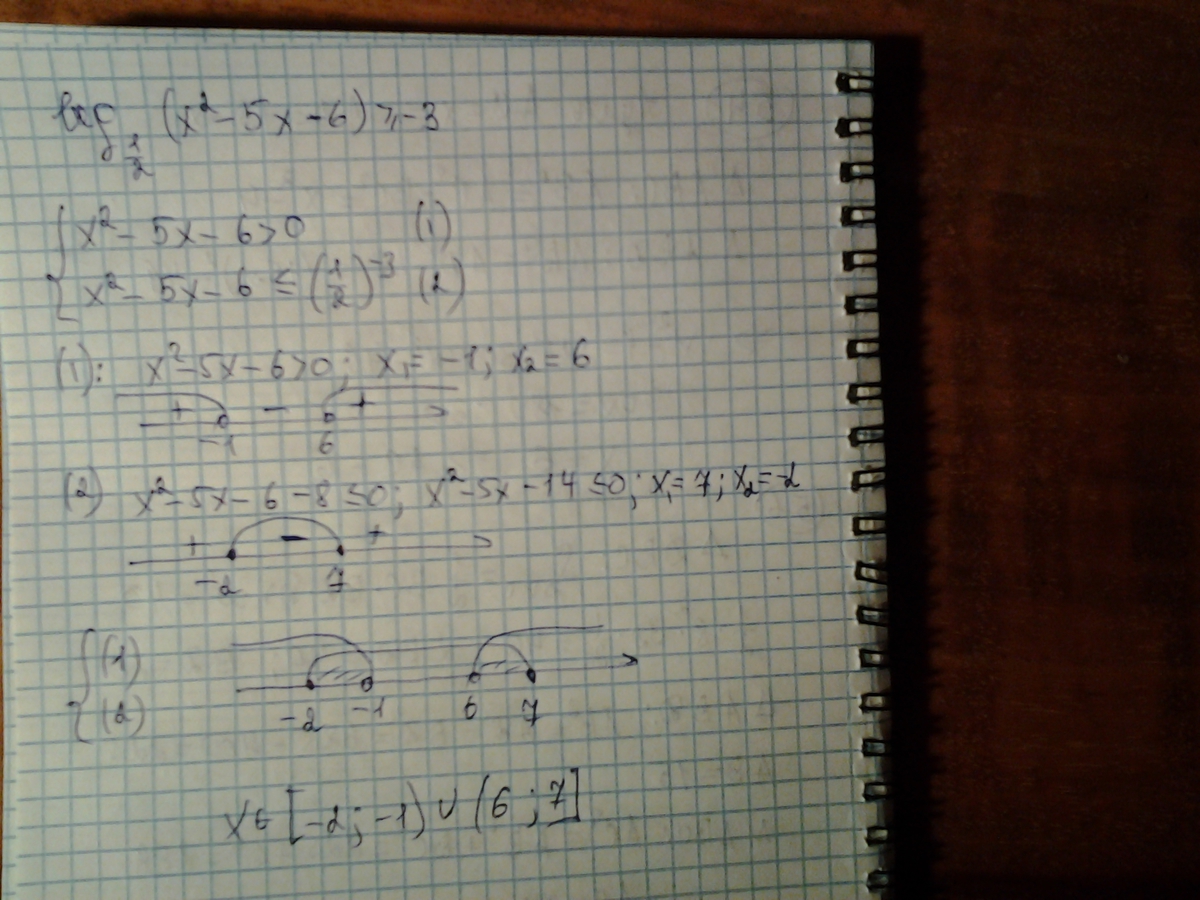 log_{1/2} (x² - 5x - 6) ≥ -3
{ x² - 5x - 6 > 0 (1)
x² - 5x - 6 ≤ (1/2)^{-3} (2)
(1): x² - 5x - 6 > 0; x₁ = -1; x₂ = 6
+ - +
-1 6
(2) x² - 5x - 6 - 8 ≤ 0; x² - 5x - 14 ≤ 0; x₁ = 7; x₂ = -2
+ - +
-2 7
{ (1)
(2)
-2 -1 6 7
x ∈ [-2; -1) ∪ (6; 7]